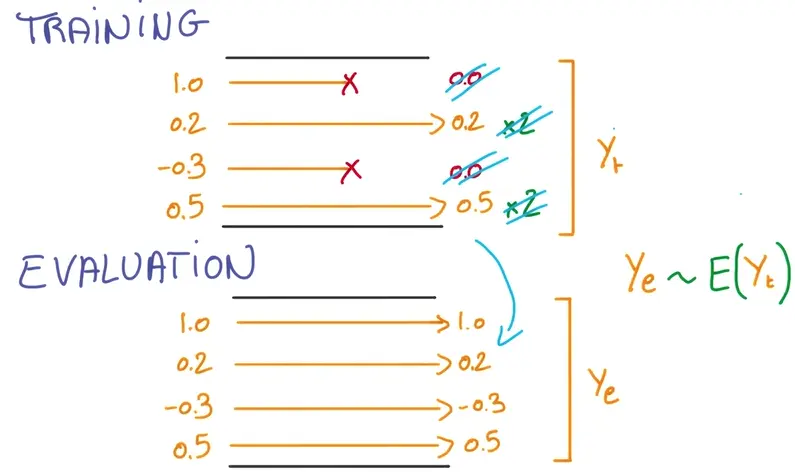 TRAINING
1.0 0.0
0.2 0.2 ×2
-0.3 0.0
0.5 0.5 ×2
Yt
EVALUATION
Ye ~ E(Yt)
1.0 1.0
0.2 0.2
-0.3 -0.3
0.5 0.5
Ye